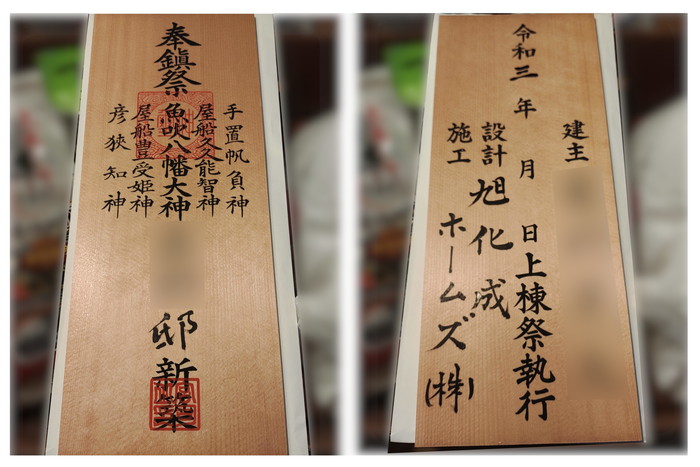 奉鎭祭
手置帆負神
屋船久久能智神
魚吹八幡大神
屋船豊受姫神
彦狭知神
邸新築
建主
令和三年 月 日上棟祭執行
設計
施工
旭化成
ホームズ(株)